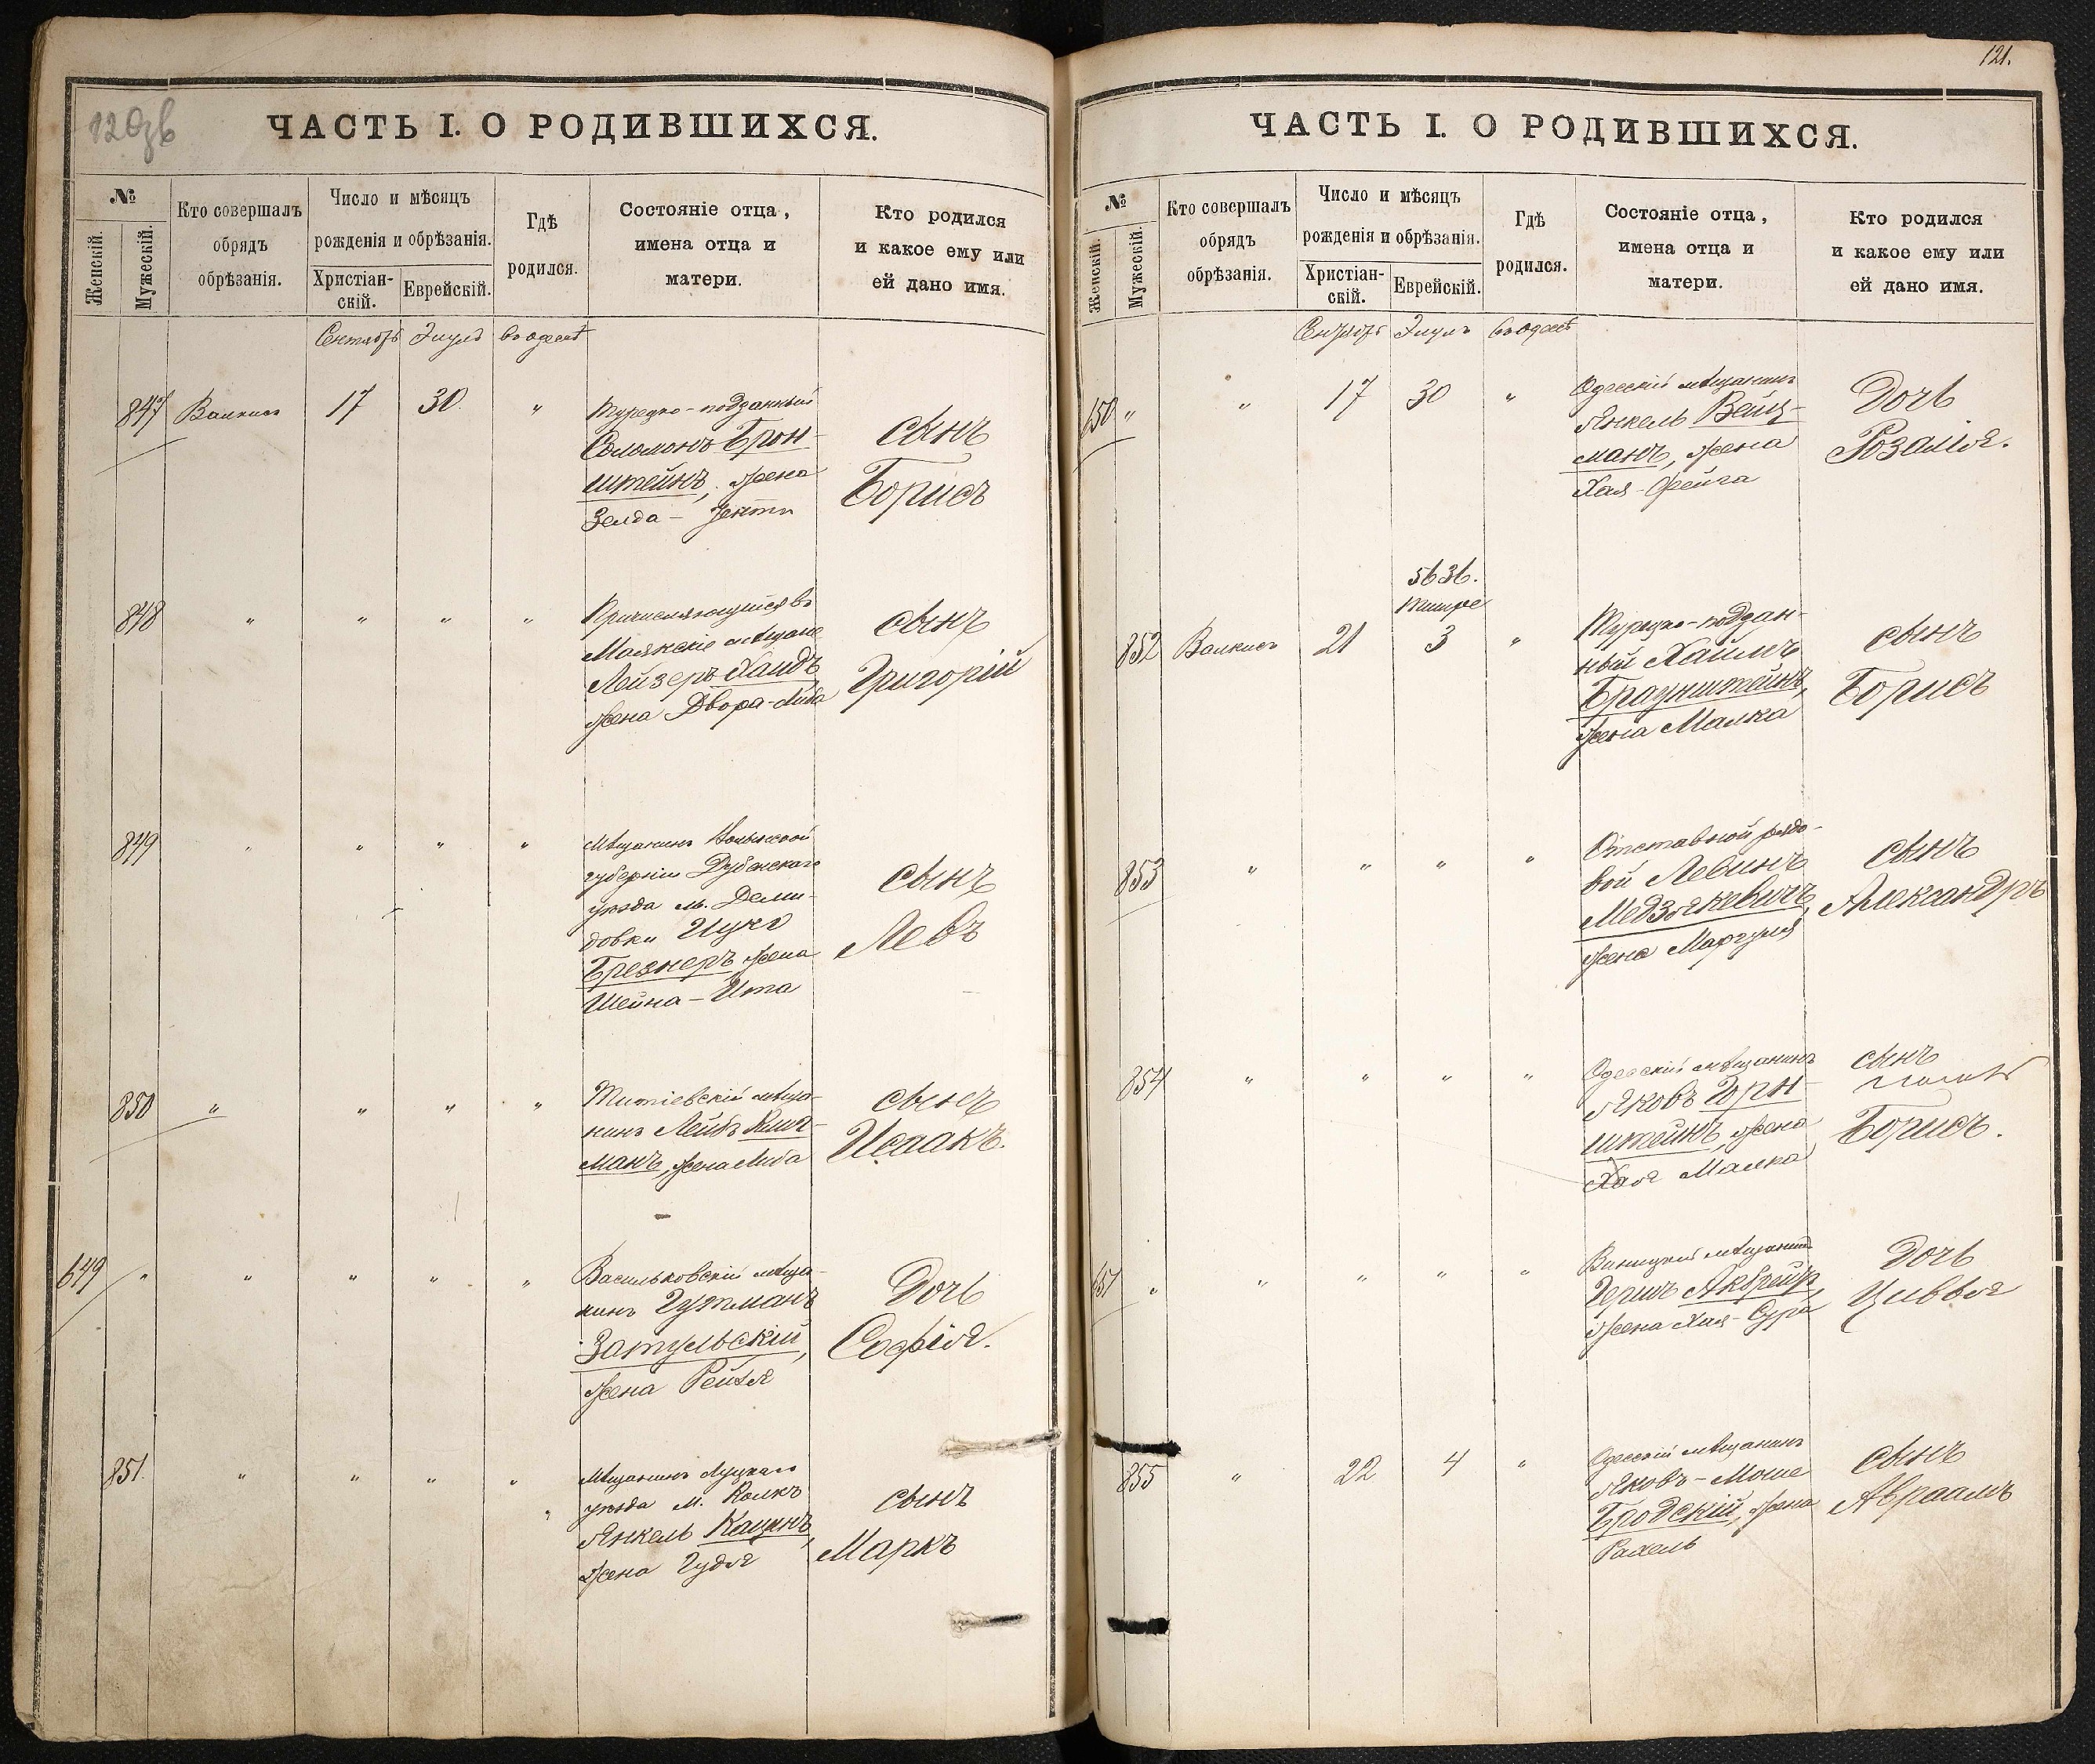 120зв
ЧАСТЬ I. О РОДИВШИХСЯ.
№
Женскій.
Мужескій.
Кто совершалъ
обрядъ
обрѣзанія.
Число и мѣсяцъ
рожденія и обрѣзанія.
Христіан-
скій.
Еврейскій.
Гдѣ
родился.
Состояніе отца,
имена отца и
матери.
Кто родился
и какое ему или
ей дано имя.
Сентябрь Элулъ въ Одессѣ
847 Валкисъ 17 30 " Турецко-подданный
Соломонъ Брон-
штейнъ, жена
Зелда-
сынъ
Борисъ
848 " " " " Причисляющійся въ
Маякскіе мѣщане
Лейзеръ Хаидъ
жена Двора-Либа
сынъ
Григорій
849 " " " " Мѣщанинъ Волынской
губерніи Дубенскаго
уѣзда м. Деми-
довки Ицко
Брезнеръ жена
Шейна-Ита
сынъ
Левъ
850 " " " " Титіевскій мѣща-
нинъ Лейбъ Клиг-
манъ, жена Либа
сынъ
Исаакъ.
649 " " " " " Васильковскій мѣща-
нинъ Гутманъ
Затульскій,
жена Рейзя
Дочь
Софія.
851. " " " " Мѣщанинъ Луцкаго
уѣзда м. Колкъ
Янкель Кацинъ,
жена Гудя
сынъ
Маркъ
121.
ЧАСТЬ I. О РОДИВШИХСЯ.
№
Женскій.
Мужескій.
Кто совершалъ
обрядъ
обрѣзанія.
Число и мѣсяцъ
рожденія и обрѣзанія.
Христіан-
скій.
Еврейскій.
Гдѣ
родился.
Состояніе отца,
имена отца и
матери.
Кто родился
и какое ему или
ей дано имя.
Сентябрь Элулъ въ Одессѣ
650 " " 17 30 " Одесскій мѣщанинъ
Янкель Вейц-
манъ, жена
Хая-Фейга
Дочь
Розалія.
5636.
Тишре
852 Валкисъ 21 3 " Турецко-поддан-
ный Хаимъ
Браунштейнъ,
жена Малка
сынъ
Борисъ
853 " " " " Отставной рядо-
вой Левинъ
Медзякевичъ,
жена Маргуля
сынъ
Александръ
854 " " " " Одесскій мѣщанинъ
Яковъ Горн-
штейнъ, жена
Хая Малка
сынъ
Борисъ.
651 " " " " " мѣщанинъ
Гершъ
жена Хая-Сура
Дочь
Цивья
855 " 22 4 " Одесскій мѣщанинъ
Яковъ-Моше
Бродскій, жена
Рахель
сынъ
Авраамъ